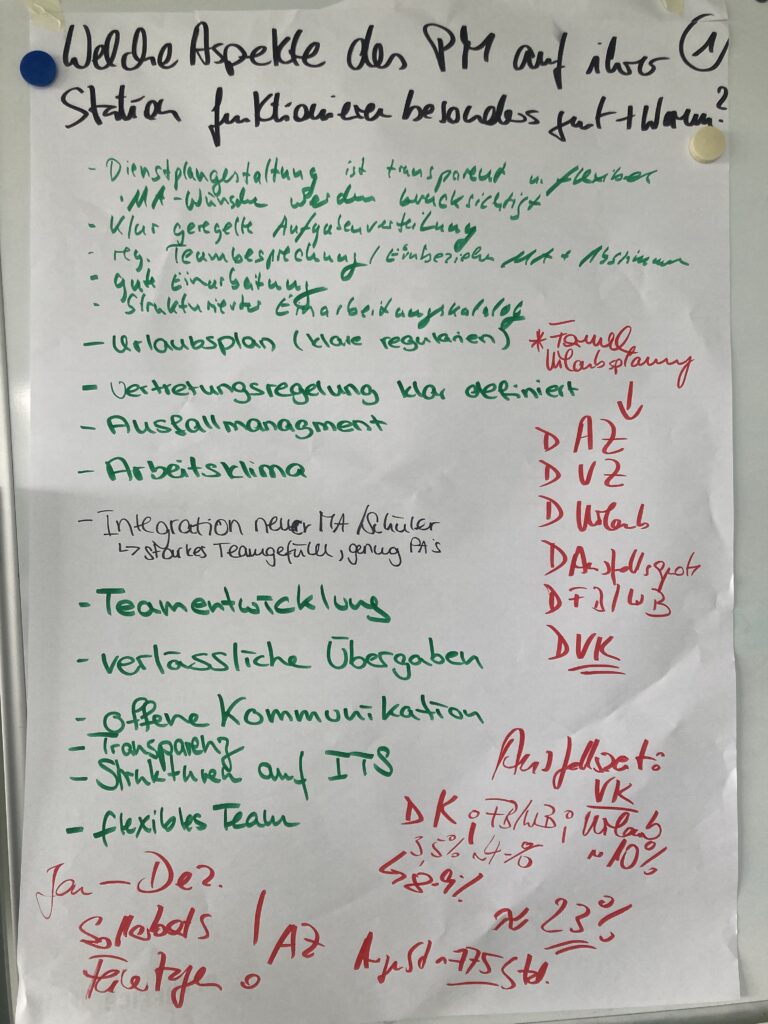 Welche Aspekte des PM auf ihrer ①
Station funktionieren besonders gut + Warum?
- Dienstplangestaltung ist transparent u. flexibel
· MA-Wünsche werden berücksichtigt
- Klar geregelte Aufgabenverteilung
- reg. Teambesprechung / Einbeziehen MA + Abstimmen
- gute Einarbeitung
- Strukturierter Einarbeitungskatalog
- Urlaubsplan (klare regularien)
- Vertretungsregelung klar definiert
- Ausfallmanagment
- Arbeitsklima
- Integration neuer MA/Schüler
↳ starkes Teamgefühl, genug PA's
- Teamentwicklung
- verlässliche Übergaben
- offene Kommunikation
- Transparenz
- Strukturen auf ITS
- flexibles Team
* Formel
Urlaubsplanung
↓
D AZ
D VZ
D Urlaub
D Ausfallsquote
D FB/WB
D VK
Ausfallzeit:
D K ; FB/WB ; Urlaub
VK
3,5% ~4% ~10%
↳ 8-9%
≈ 23%
Jan - Dez.
Feiertage ! AZ
775 Std.